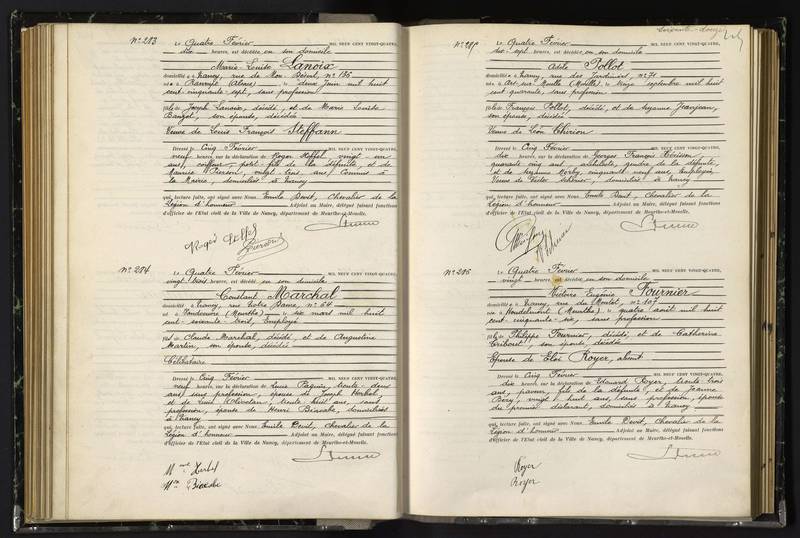 N° 283
Le Quatre Février MIL NEUF CENT VINGT-QUATRE,
dix heures, est décédée en son domicile
Marie-Louise Lanoix
domiciliée à Nancy, rue de Mon Désert, n° 136
née à (Alsace) le deux Juin mil huit
cent cinquante-sept, sans profession
fille de Joseph Lanoix, décédé, et de Marie Louise
son épouse, décédée
Veuve de Louis François Steffann
Dressé le Cinq Février MIL NEUF CENT VINGT-QUATRE,
neuf heures, sur la déclaration de Roger vingt un
ans, petit fils de la défunte, et de
Maurice Pierson, vingt trois ans, Commis à
la Mairie, domiciliés à Nancy
qui, lecture faite, ont signé avec Nous Emile Devit, Chevalier de la
Légion d'honneur Adjoint au Maire, délégué faisant fonctions
d'officier de l'Etat civil de la Ville de Nancy, département de Meurthe-et-Moselle.
N° 284
Le Quatre Février MIL NEUF CENT VINGT-QUATRE,
vingt trois heures, est décédé en son domicile
Constant Marchal
domicilié à Nancy, rue Notre Dame, n° 64
né à Vandœuvre (Meurthe) le six mars mil huit
cent soixante trois, Employé
fils de Claude Marchal, décédé, et de Augustine
Martin, son épouse, décédée
Célibataire
Dressé le Cinq Février MIL NEUF CENT VINGT-QUATRE,
neuf heures, sur la déclaration de Lucie trente deux
ans, sans profession, épouse de Joseph Herbel
et de trente huit ans, sans
profession, épouse de Henri domiciliées
à Nancy
qui, lecture faite, ont signé avec Nous Emile Devit, Chevalier de la
Légion d'honneur Adjoint au Maire, délégué faisant fonctions
d'officier de l'Etat civil de la Ville de Nancy, département de Meurthe-et-Moselle.
N° 285
Le Quatre Février MIL NEUF CENT VINGT-QUATRE,
dix sept heures, est décédée en son domicile
Adèle Pollot
domiciliée à Nancy, rue des Jardiniers, n° 71
née à Ars-sur-Moselle (Moselle) le treize septembre mil huit
cent quarante, sans profession
fille de François Pollot, décédé, et de Suzanne
son épouse, décédée
Veuve de Léon Thirion
Dressé le Cinq Février MIL NEUF CENT VINGT-QUATRE,
dix heures, sur la déclaration de Georges François
quarante cinq ans, gendre de la défunte,
et de Suzanne cinquante neuf ans, Employée,
Veuve de Victor domiciliés à Nancy
qui, lecture faite, ont signé avec Nous Emile Devit, Chevalier de la
Légion d'honneur Adjoint au Maire, délégué faisant fonctions
d'officier de l'Etat civil de la Ville de Nancy, département de Meurthe-et-Moselle.
N° 286
Le Quatre Février MIL NEUF CENT VINGT-QUATRE,
vingt heures, est décédée en son domicile
Victoire Eugénie Fournier
domiciliée à Nancy, rue du n° 107
née à (Meurthe) le quatre août mil huit
cent cinquante-six, sans profession
fille de Philippe Fournier, décédé, et de Catherine
son épouse, décédée
Epouse de Eloi Royer,
Dressé le Cinq Février MIL NEUF CENT VINGT-QUATRE,
dix heures, sur la déclaration de Edouard Royer, trente trois
ans, fils de la défunte, et de Jeanne
vingt huit ans, sans profession, épouse
du premier déclarant, domiciliés à Nancy
qui, lecture faite, ont signé avec Nous Emile Devit, Chevalier de la
Légion d'honneur Adjoint au Maire, délégué faisant fonctions
d'officier de l'Etat civil de la Ville de Nancy, département de Meurthe-et-Moselle.
Royer
Royer